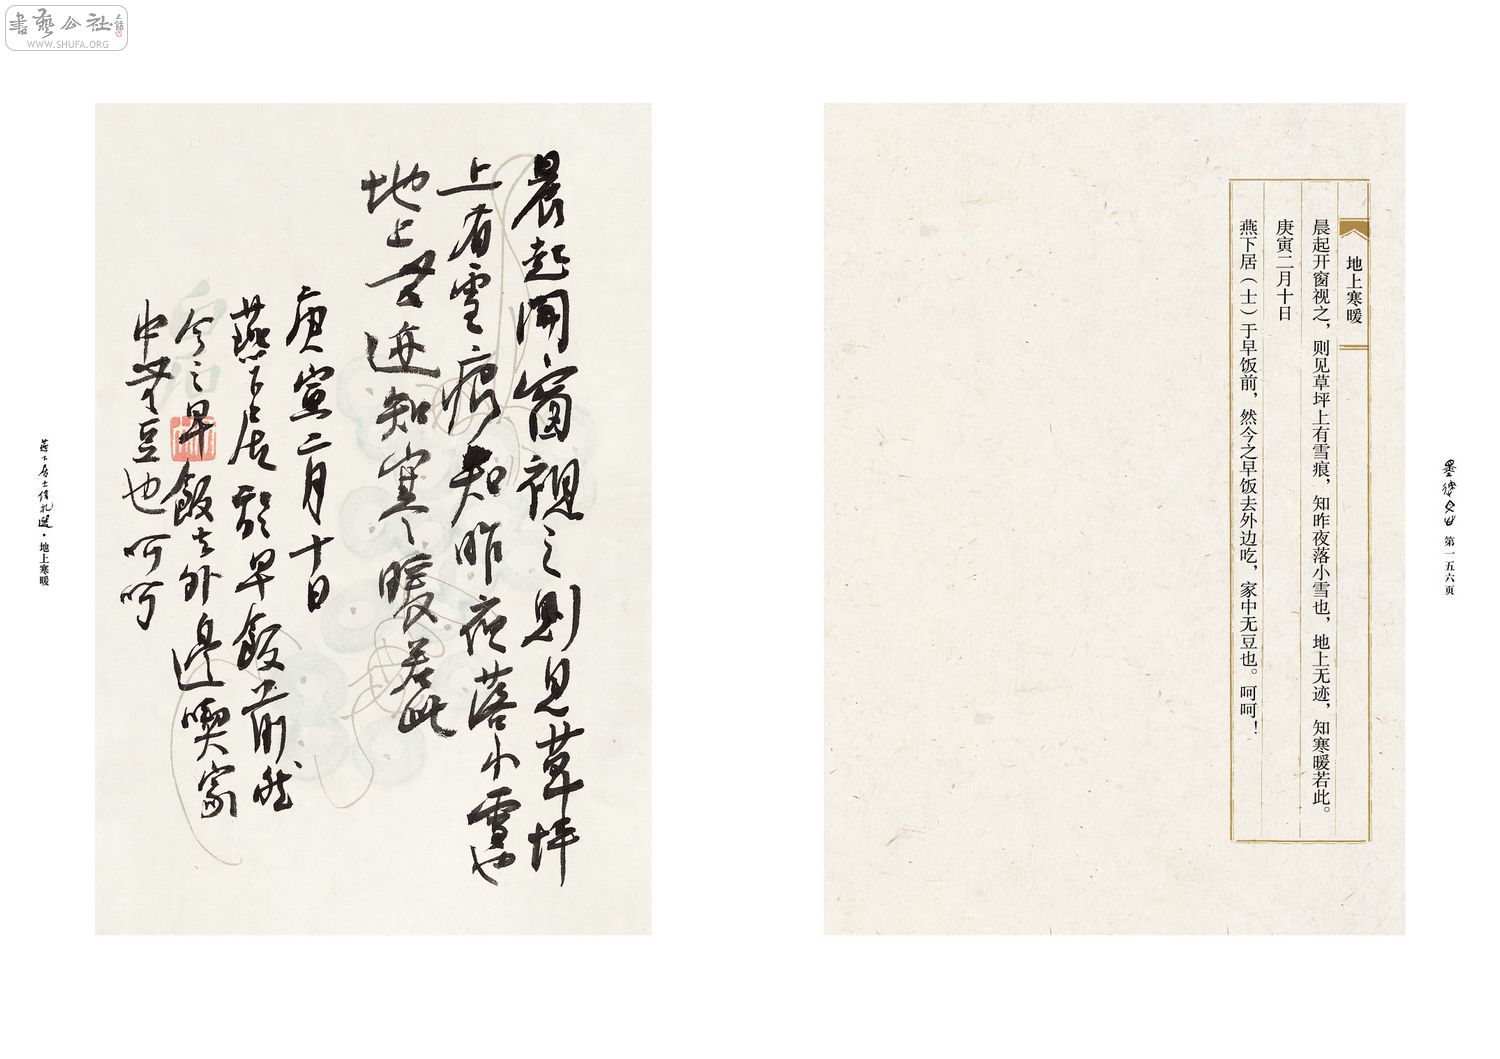 書藝公社
WWW.SHUFA.ORG
地上寒暖
晨起开窗视之，则见草坪上有雪痕，知昨夜落小雪也，地上无迹，知寒暖若此。
庚寅二月十日
燕下居（士）于早饭前，然今之早饭去外边吃，家中无豆也。呵呵！
第一五六页
晨起開窗視之則見草坪
上有雪痕知昨夜落小雪也
地上無迹知寒暖若此
庚寅二月十日
燕下居於早飯前然
今之早飯去外邊喫家
中無豆也呵呵
燕下居士信札選·地上寒暖